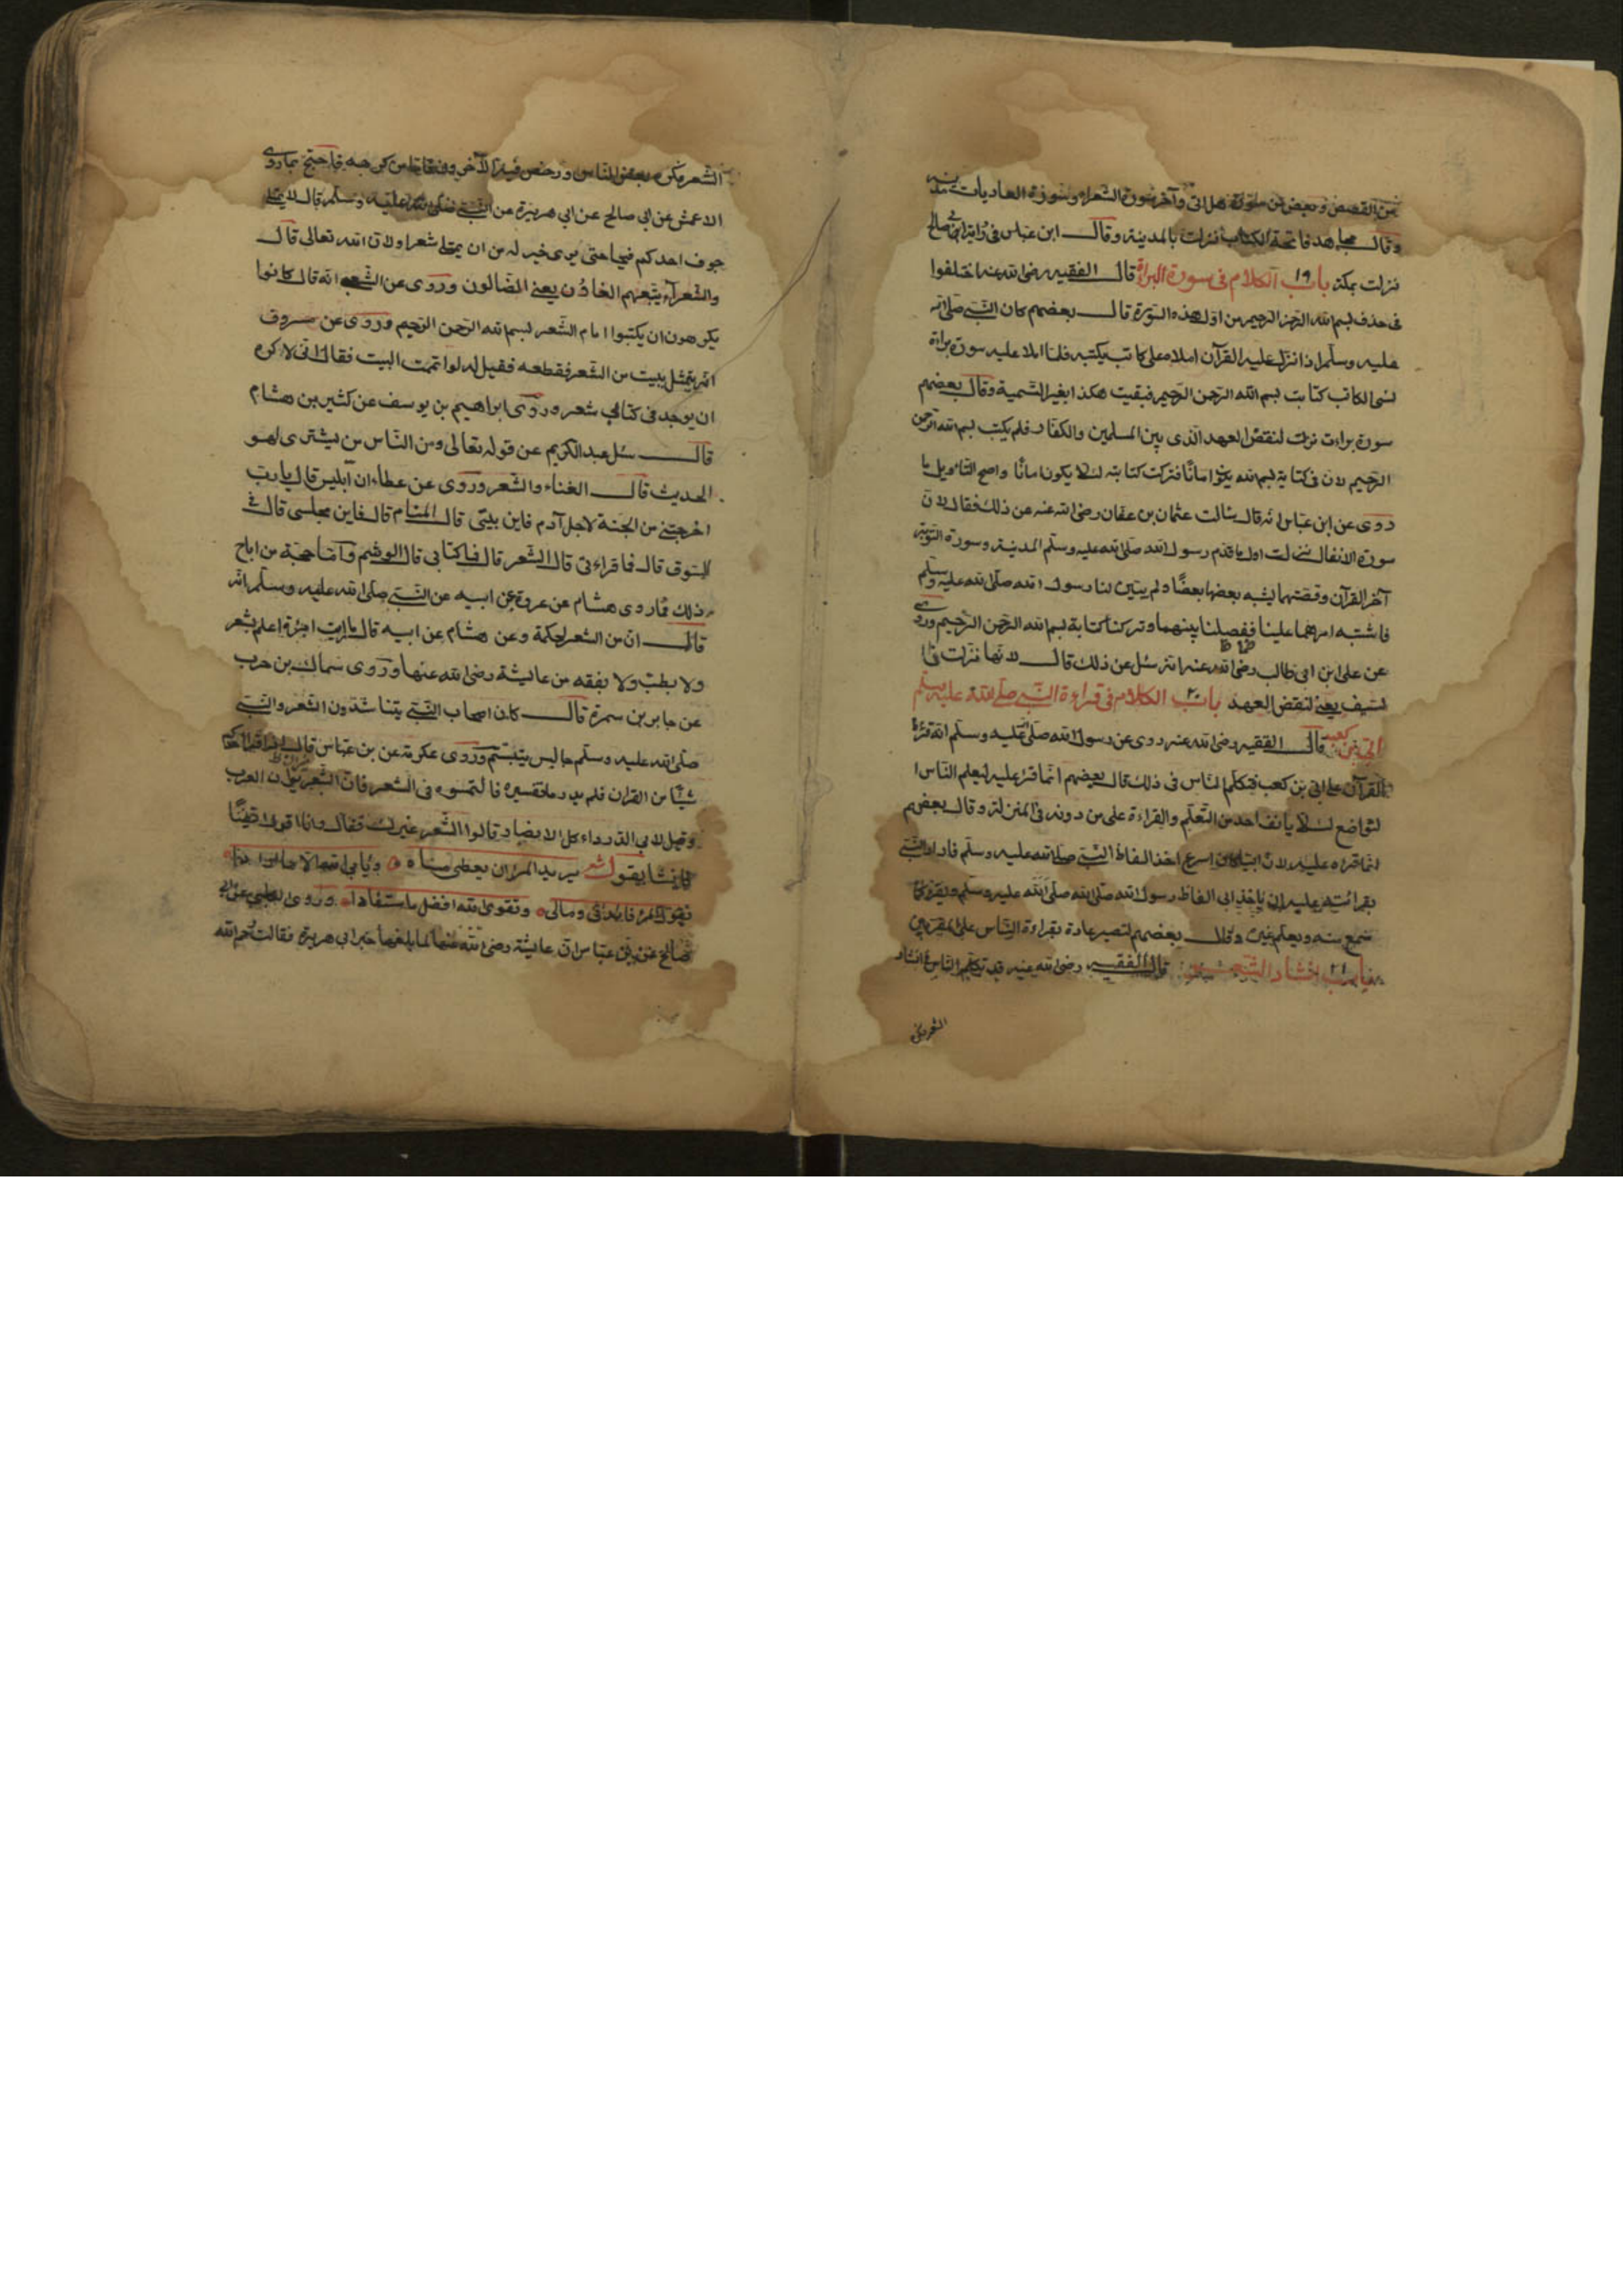 من القصص وبعض من سورة هل اتى وآخر سورة الشعراء وسورة العاديات مدنية
وقال مجاهد فاتحة الكتاب نزلت بالمدينة وقال ابن عباس في رواية ابي صالح
نزلت بمكة باب ١٩ الكلام في سورة البراة قال الفقيه رضي الله عنه اختلفوا
في حذف بسم الله الرحمن الرحيم من اول هذه السورة قال بعضهم كان النبي صلى الله
عليه وسلم اذا نزل عليه القرآن املاه على كاتب يكتبه فلما املا عليه سورة براة
نسى الكاتب كتابت بسم الله الرحمن الرحيم فبقيت هكذا بغير التسمية وقال بعضهم
سورة براءت نزلت لنقض العهد الذى بين المسلمين والكفار فلم يكتب بسم الله الرحمن
الرحيم لان في كتابة بسم الله امانا فتركت كتابته لئلا يكون امانا واصح التاويل ما
روى عن ابن عباس انه قال سالت عثمان بن عفان رضي الله عنه عن ذلك فقال لان
سورة الانفال نزلت اول ما قدم رسول الله صلى الله عليه وسلم المدينة وسورة التوبة
آخر القرآن وقصتهما يشبه بعضها بعضا ولم يبين لنا رسول الله صلى الله عليه وسلم
فاشتبه امرهما علينا ففصلنا بينهما وتركنا كتابة بسم الله الرحمن الرحيم وروى
عن على ابن ابى طالب رضي الله عنه انه سئل عن ذلك قال لانها نزلت في
السيف يعنى لنقض العهد باب ٢٠ الكلام في قراءة النبي صلى الله عليه وسلم
ابي بن كعب قال الفقيه رضي الله عنه روى عن رسول الله صلى الله عليه وسلم انه قرا
القرآن على ابي بن كعب فتكلم الناس في ذلك قال بعضهم انما قرا عليه ليعلم الناس
التواضع لئلا يانف احد من التعلم والقراءة على من دونه في المنزلة وقال بعضهم
انما قراه عليه لان ابيا كان اسرع اخذ الفاظ النبي صلى الله عليه وسلم فاراد النبي
بقرائته عليه ان ياخذ ابي الفاظ رسول الله صلى الله عليه وسلم ويقرء كما
سمع منه ويعلم غيره وقال بعضهم لتصير عادة بقراءة الناس على المقرئين
باب ٢١ انشاد الشعر قال الفقيه رضي الله عنه قد تكلم الناس في انشاد
الشعر فكره
الشعر فكره بعض الناس ورخص فيه الآخرون فاما من كرهه فاحتج بما روى
الاعمش عن ابي صالح عن ابي هريرة عن النبي صلى الله عليه وسلم قال لان يمتلى
جوف احدكم قيحا حتى يريه خير له من ان يمتلى شعرا ولان الله تعالى قال
والشعراء يتبعهم الغاوٗن يعنى الضالون وروى عن الشعبى انه قال كانوا
يكرهون ان يكتبوا امام الشعر بسم الله الرحمن الرحيم وروى عن مسروق
انه يتمثل ببيت من الشعر فقطعه فقيل له لو اتممت البيت فقال انى لاكره
ان يوجد في كتابي شعر وروى ابراهيم بن يوسف عن كثير بن هشام
قال سئل عبد الكريم عن قوله تعالى ومن الناس من يشترى لهو
الحديث قال الغناء والشعر وروى عن عطاء ان ابليس قال يا رب
اخرجتنى من الجنة لاجل آدم فاين بيتى قال الحمام قال فاين مجلسى قال في
السوق قال فما قراءتى قال الشعر قال فما كتابي قال الوشم واما حجة من اباح
ذلك فما روى هشام عن عروة عن ابيه عن النبي صلى الله عليه وسلم انه
قال ان من الشعر لحكمة وعن هشام عن ابيه قال ما رايت امرأة اعلم بشعر
ولا بطب ولا بفقه من عايشة رضي الله عنها وروى سماك بن حرب
عن جابر بن سمرة قال كان اصحاب النبي يتناشدون الشعر والنبي
صلى الله عليه وسلم جالس يتبسم وروى عكرمة عن بن عباس قال اذا قرا احدكم
شيئا من القران فلم يدر ما تفسيره فالتمسوه في الشعر فان الشعر ديوان العرب
وقيل لابي الدرداء كل الانصار قالوا الشعر غيرك فقال وانا اقول ايضا
فانشا يقول شعر يريد المرء ان يعطى مناه ويابى الله الا ما ارادا
يقول المرء فائدتى ومالى وتقوى الله افضل ما استفادا وروى الكلبى عن ابي
صالح عن ابن عباس ان عايشة رضي الله عنها لما بلغها خبر ابي هريرة فقالت رحم الله